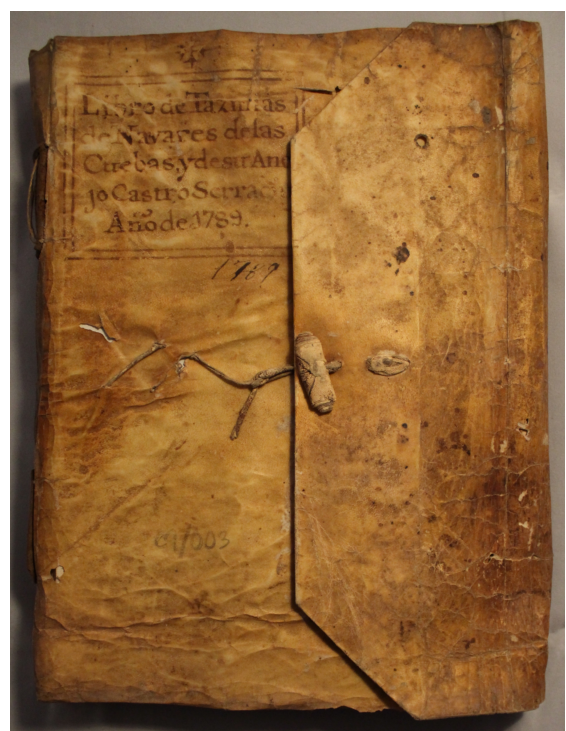 Libro de Tazmias
de Navares de las
Cuebas, y de su Ane
jo Castro Serracin
Año de 1789.
1789
61/003